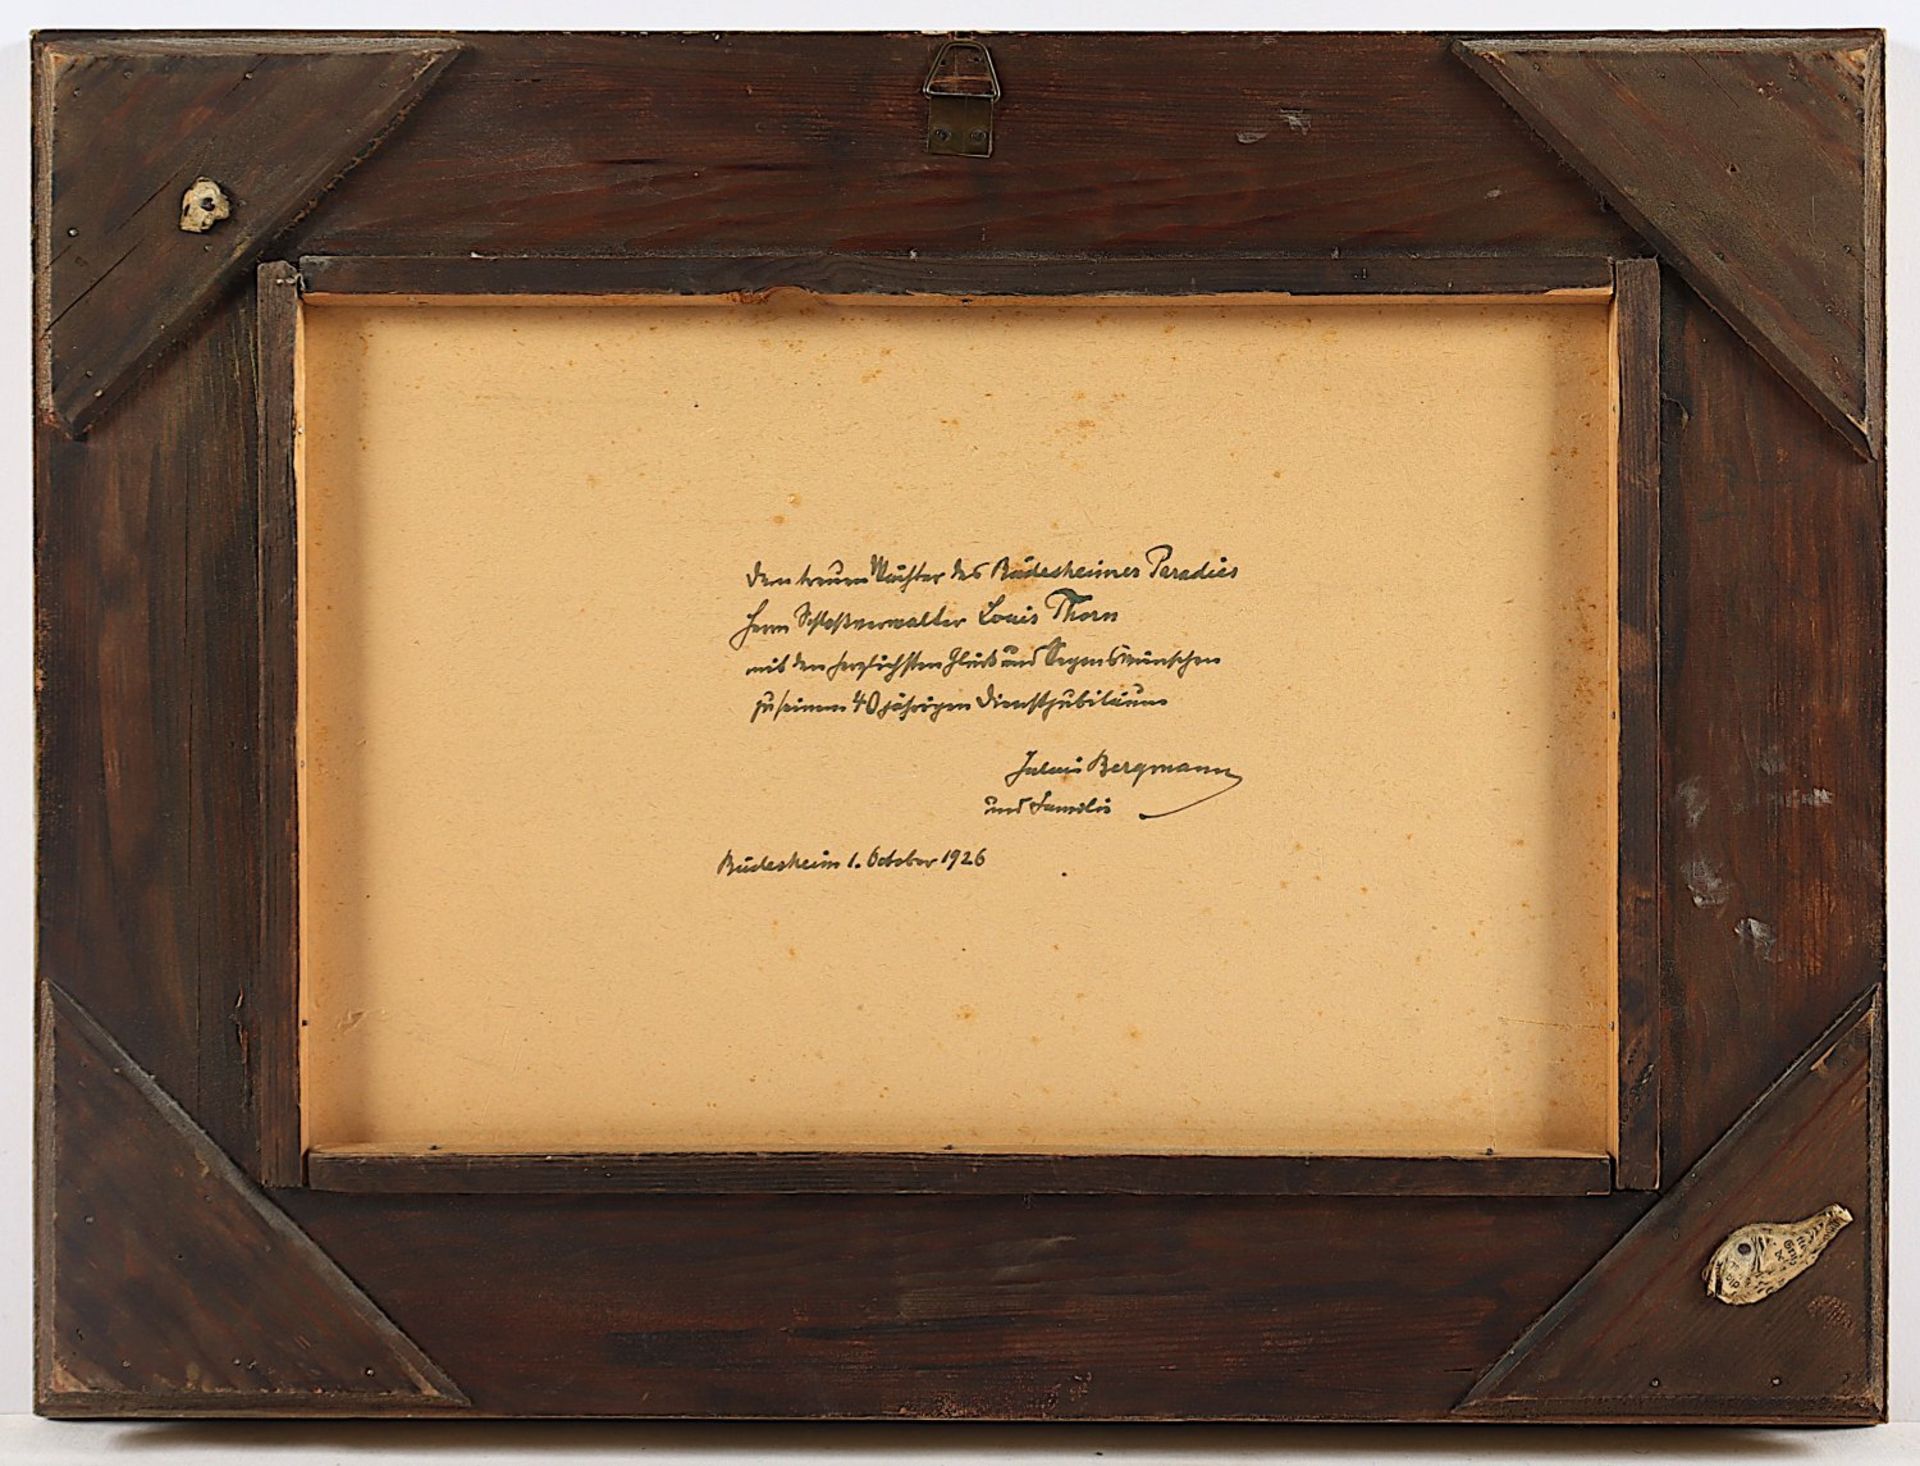 Dem treuen Wächter des Büdesheimer Paradies
Herrn Schloßverwalter Louis Thorn
mit den herzlichsten Glück und Segenswünschen
zu seinem 40 jährigen Dienstjubiläum
Julius Bergmann
und Familie
Büdesheim 1. October 1926